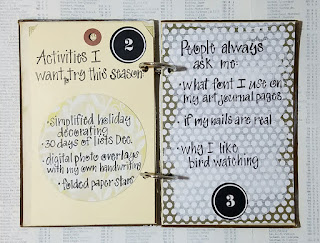 2
Activities I
want try this season
• simplified holiday
decorating
• 30 days of lists Dec.
• digital photo overlays
with my own handwriting
• folded paper stars
People always
ask me:
• what font I use on
my art journal pages
• if my nails are real
• why I like
bird watching
3